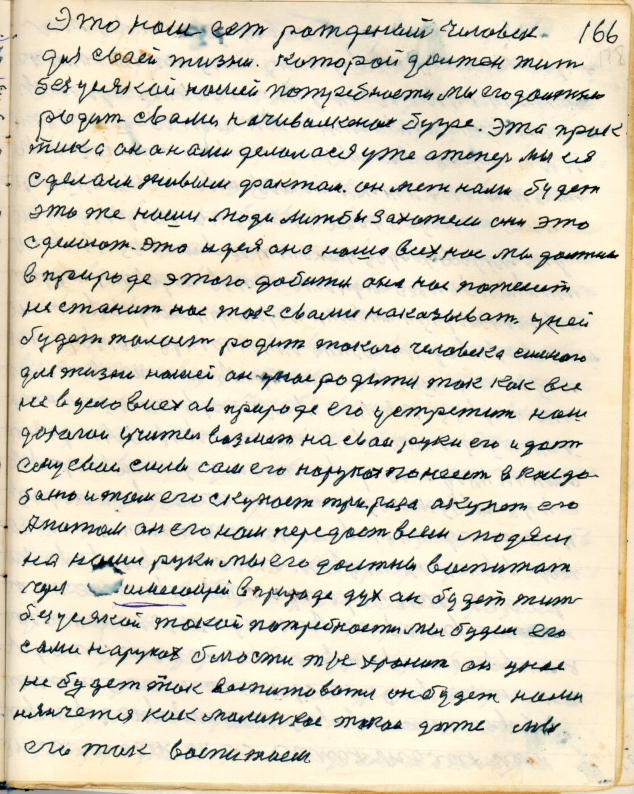 Это наш сет рождений Человек 166
для сваей жизни. которой должен жит
без усякой нашей потребности мы его должны
родит свами начивалконае бугре. Эта прак
тика ананами делолася уже атепер мы ея
сделаим живым фрактам. он меж нами будет
это же наши люди литбы захотели они это
сделают. Это идея она наша всех нас мы должны
в природе этого добитц она нас пожелеит
не станит нас так свами наказыват. уней
будет талант родит такого человека
для жизни нашей он унас родитц так как все
не вусловиех ав природе его устретит наш
дорагой учител возмет на сваи руки его и даст
ему сваи силы сам его наруках понесет в
и там его скупает три раза акунет его
Апотом он его нам передаст всем людям
на наши руки мы его должны воспитат
имеющей в природе дух ан будет жит
без усякой такой потребности мы будем его
сами наруках блюсти хранит он унас
не будет так воспитоватц он будет нами
нянчется как малинкое такое дите мы
его так воспитаем